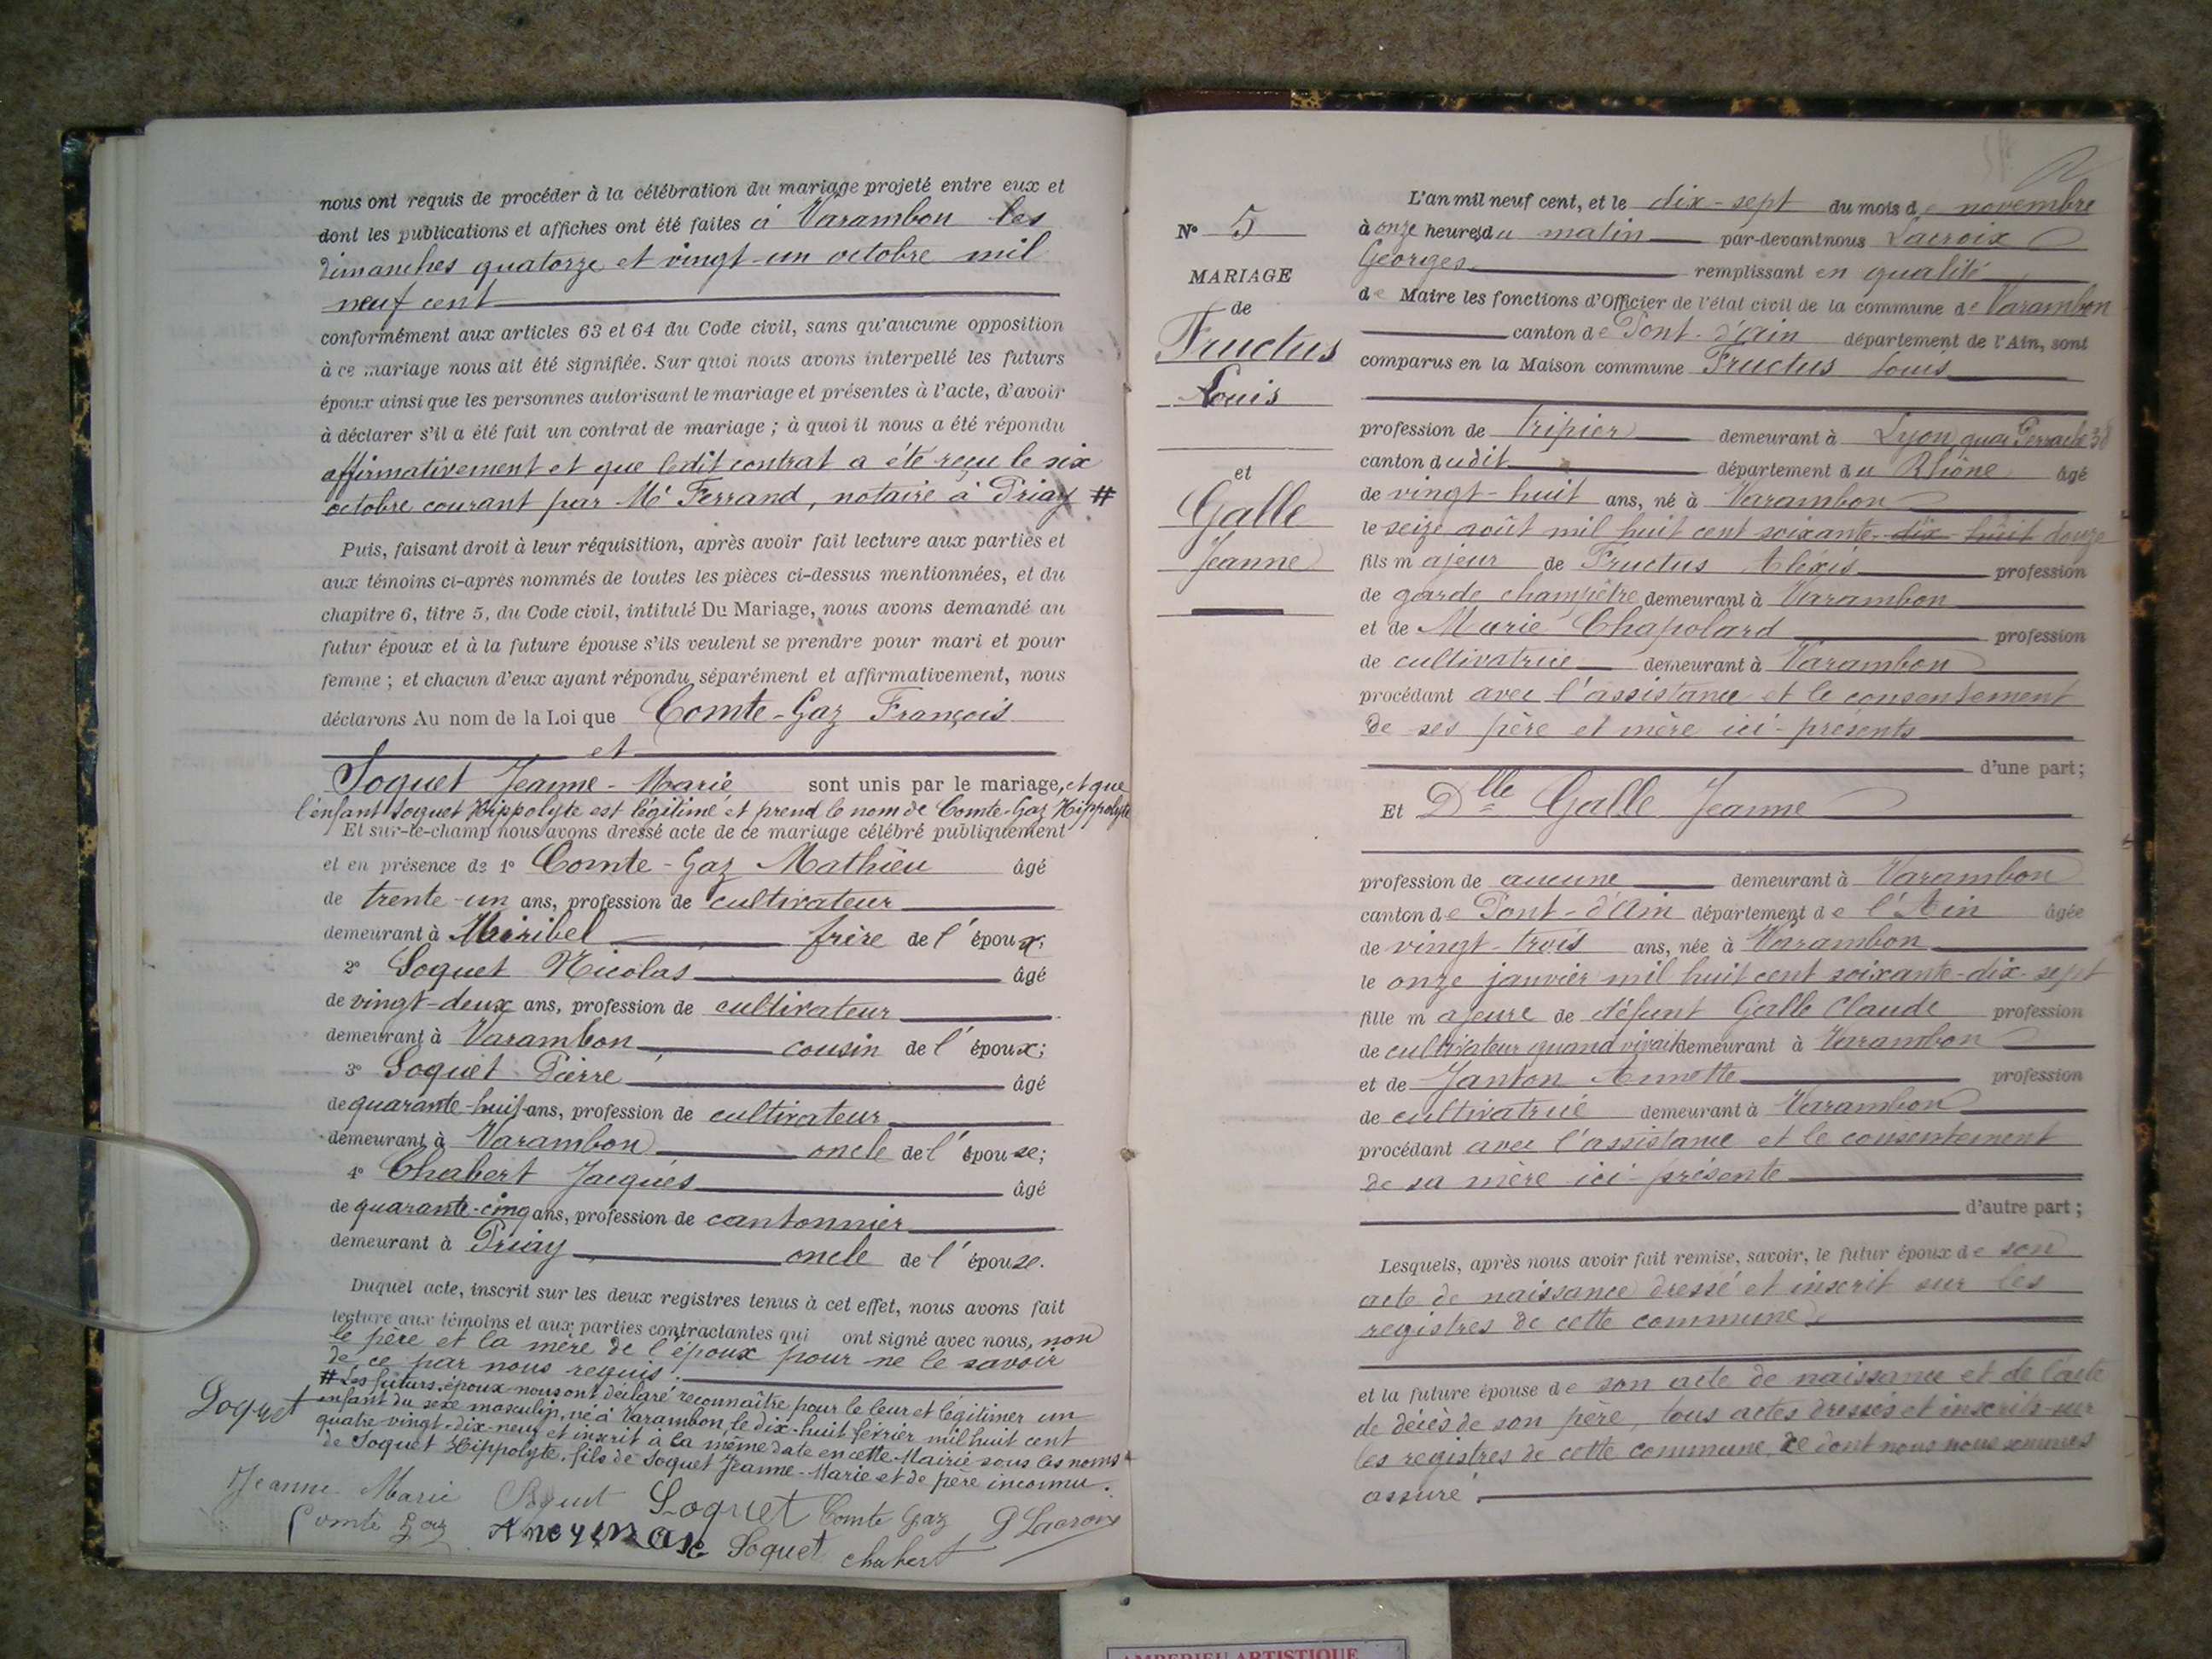 nous ont requis de procéder à la célébration du mariage projeté entre eux et
dont les publications et affiches ont été faites à Varambon les
dimanches quatorze et vingt-un octobre mil
neuf cent
conformément aux articles 63 et 64 du Code civil, sans qu'aucune opposition
à ce mariage nous ait été signifiée. Sur quoi nous avons interpellé les futurs
époux ainsi que les personnes autorisant le mariage et présentes à l'acte, d'avoir
à déclarer s'il a été fait un contrat de mariage ; à quoi il nous a été répondu
affirmativement et que ledit contrat a été reçu le six
octobre courant par Me Ferrand, notaire à Priay #
Puis, faisant droit à leur réquisition, après avoir fait lecture aux parties et
aux témoins ci-après nommés de toutes les pièces ci-dessus mentionnées, et du
chapitre 6, titre 5, du Code civil, intitulé Du Mariage, nous avons demandé au
futur époux et à la future épouse s'ils veulent se prendre pour mari et pour
femme ; et chacun d'eux ayant répondu séparément et affirmativement, nous
déclarons Au nom de la Loi que Comte-Gaz François
et
Soquet Jeanne-Marie sont unis par le mariage, et que
l'enfant Soquet Hippolyte est légitimé et prend le nom de Comte-Gaz Hippolyte
Et sur-le-champ nous avons dressé acte de ce mariage célébré publiquement
et en présence de 1° Comte-Gaz Mathieu âgé
de trente-un ans, profession de cultivateur
demeurant à Miribel frère de l'époux;
2° Soquet Nicolas âgé
de vingt-deux ans, profession de cultivateur
demeurant à Varambon cousin de l'époux;
3° Soquet Pierre âgé
de quarante-huit ans, profession de cultivateur
demeurant à Varambon oncle de l'épouse;
4° Chabert Jacques âgé
de quarante-cinq ans, profession de cantonnier
demeurant à Priay oncle de l'épouse.
Duquel acte, inscrit sur les deux registres tenus à cet effet, nous avons fait
lecture aux témoins et aux parties contractantes qui ont signé avec nous, non
le père et la mère de l'époux pour ne le savoir
de ce par nous requis.
# Les futurs époux nous ont déclaré reconnaître pour le leur et légitimer un
enfant du sexe masculin, né à Varambon, le dix-huit février mil huit cent
quatre-vingt-dix-neuf et inscrit à la même date en cette Mairie sous les noms
de Soquet Hippolyte, fils de Soquet Jeanne-Marie et de père inconnu.
Soquet
Jeanne Marie Soquet Soquet Comte Gaz G Lacroix
Comte Gaz Soquet chabert
N° 5
MARIAGE
de
Fructus
Louis
et
Galle
Jeanne
L'an mil neuf cent, et le dix-sept du mois de novembre
à onze heures du matin par-devant nous Lacroix
Georges remplissant en qualité
de Maire les fonctions d'Officier de l'état civil de la commune de Varambon
canton de Pont-d'Ain département de l'Ain, sont
comparus en la Maison commune Fructus Louis
profession de tripier demeurant à Lyon, quai Perrache 38
canton dudit département du Rhône âgé
de vingt-huit ans, né à Varambon
le seize août mil huit cent soixante-dix-huit douze
fils majeur de Fructus Alexis profession
de garde champêtre demeurant à Varambon
et de Marie Chapolard profession
de cultivatrice demeurant à Varambon
procédant avec l'assistance et le consentement
de ses père et mère ici-présents
d'une part;
Et Dlle Galle Jeanne
profession de aucune demeurant à Varambon
canton de Pont-d'Ain département de l'Ain âgée
de vingt-trois ans, née à Varambon
le onze janvier mil huit cent soixante-dix-sept
fille majeure de défunt Galle Claude profession
de cultivateur quand vivait demeurant à Varambon
et de Janton Annette profession
de cultivatrice demeurant à Varambon
procédant avec l'assistance et le consentement
de sa mère ici-présente
d'autre part;
Lesquels, après nous avoir fait remise, savoir, le futur époux de son
acte de naissance dressé et inscrit sur les
registres de cette commune,
et la future épouse de son acte de naissance et de l'acte
de décès de son père, tous actes dressés et inscrits sur
les registres de cette commune, ce dont nous nous sommes
assuré.
AMBERIEU ARTISTIQUE